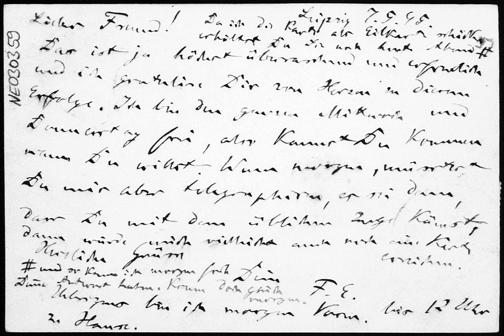 Leipzig 7.5.45.
Lieber Freund! Da ich die Karte als Eilkarte schicke
erhältst Du sie noch heut Abend #
Das ist ja höchst überraschend und erfreulich
und ich gratuliere Dir von Herzen zu diesem
Erfolge. Ich bin den ganzen Mittwoch und
Donnerstag frei, also kannst Du kommen
wann Du willst. Wenn morgen, müsstest
Du mir aber telegraphieren, es sei denn,
dass Du mit dem üblichen Zuge kämst,
dann würde Gerücht vielleicht auch noch eine Karte
erreichen.
Herzliche Grüsse
Dein
F. E.
# und so kann ich morgen früh
Deine Antwort haben. Komm doch gleich
morgen.
Übrigens bin ich morgen Vorm. bis 12 Uhr
zu Hause.
NE030359